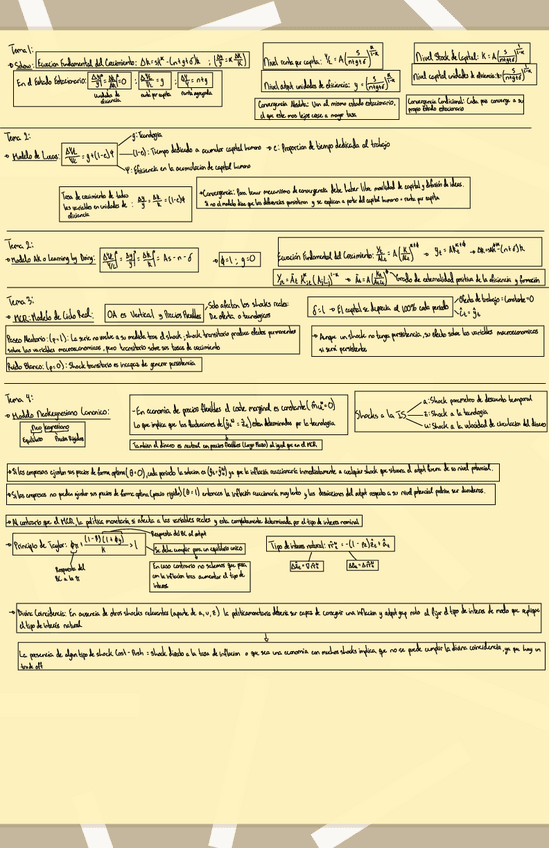 Tema 1:
→ Solow: Ecuación Fundamental del Crecimiento: Δk = sk^α - (n+g+δ)k ; (Δy/y = α Δk/k)
En el Estado Estacionario: Δy/y = Δk/k = 0 ; = g ; = n+g
unidades de eficiencia
renta per capita
renta agregada
Nivel renta per capita: Y/L = A (s/(n+g+δ))^(α/(1-α))
Nivel output unidades de eficiencia: y = (s/(n+g+δ))^(α/(1-α))
Convergencia Absoluta: Van al mismo estado estacionario,
el que esta mas lejos crece a mayor tasa
Nivel Stock de Capital: K = A (s/(n+g+δ))^(1/(1-α))
Nivel capital unidades de eficiencia: k = (s/(n+g+δ))^(1/(1-α))
Convergencia Condicional: Cada pais converge a su
propio Estado estacionario
Tema 2:
→ Modelo de Lucas: = g + (1-e)ψ
g: Tecnología
(1-e): Tiempo dedicado a acumular capital humano → e: Proporcion de tiempo dedicado al trabajo
ψ: Eficiencia en la acumulación de capital humano
Tasa de crecimiento de todas
las variables en unidades de
eficiencia
: Δy/y = Δk/k = (1-e)ψ
→ Convergencia: Para tener mecanismo de convergencia debe haber libre movilidad de capital y difusión de ideas.
Si no el modelo dice que las diferencias persistiran y se explican a partir del capital humano → renta per capita
Tema 2:
→ Modelo Ak o Learning by Doing: = As - n - δ → ϕ=1 ; g=0
Ecuación Fundamental del Crecimiento:
Grado de externalidad positiva de la eficiencia y formación
Tema 3:
→ MCR: Modelo de Ciclo Real: OA es Vertical y Precios Flexibles
Solo afectan los shocks reales:
De oferta o tecnologicos
δ=1 → El capital se deprecia al 100% cada periodo
Oferta de trabajo = Constante = 0
Paseo Aleatorio: (ρ=1): La serie no vuelve a su media tras el shock ; shock transitorio produce efectos permanentes
sobre las variables macroeconomicas , pero transitorio sobre sus tasas de crecimiento
Ruido Blanco: (ρ=0): Shock transitorio es incapaz de generar persistencia
→ Aunque un shock no tenga persistencia, su efecto sobre las variables macroeconomicas
si será persistente
Tema 4:
→ Modelo Neokeynesiano Canonico:
Neo keynesiano
Equilibrio Precios Rígidos
- En economia de precios flexibles el coste marginal es constante
Lo que implica que las fluctuaciones del estan determinadas por la tecnología
También el dinero es neutral con precios flexibles (Largo Plazo) al igual que en el MCR
Shocks a la IS
a: Shock parametro de descuento temporal
z: Shock a la tecnologia
u: Shock a la velocidad de circulacion del dinero
→ Si las empresas ajustan sus precios de forma optima (θ=0), cada periodo la solucion es ya que la inflación reaccionaria inmediatamente a cualquier shock que situara al output fuera de su nivel potencial.
→ Si las empresas no pueden ajustar sus precios de forma optima (precios rígidos) (θ=1) entonces la inflación reaccionaria muy lento y las desviaciones del output respecto a su nivel potencial podrian ser duraderas.
→ Al contrario que el MCR, la politica monetaria si afecta a las variables reales y esta completamente determinada por el tipo de interes nominal
→ Principio de Taylor: > 1
Respuesta del BC al output
Respuesta del
BC a la π
Se debe cumplir para un equilibrio unico
En caso contrario no sabemos que pasa
con la inflación tras aumentar el tipo de
interes
Tipo de interes natural:
→ Divina Coincidencia: En ausencia de otros shocks relevantes (aparte de a, u, z) la política monetaria deberia ser capaz de conseguir una inflación y output gap nulo al fijar el tipo de interes de modo que replique
el tipo de interes natural.
La presencia de algun tipo de shock Cost-Push = shock directo a la tasa de inflacion o que sea una economia con muchos shocks implica que no se puede cumplir la divina coincidencia, ya que hay un
trade off